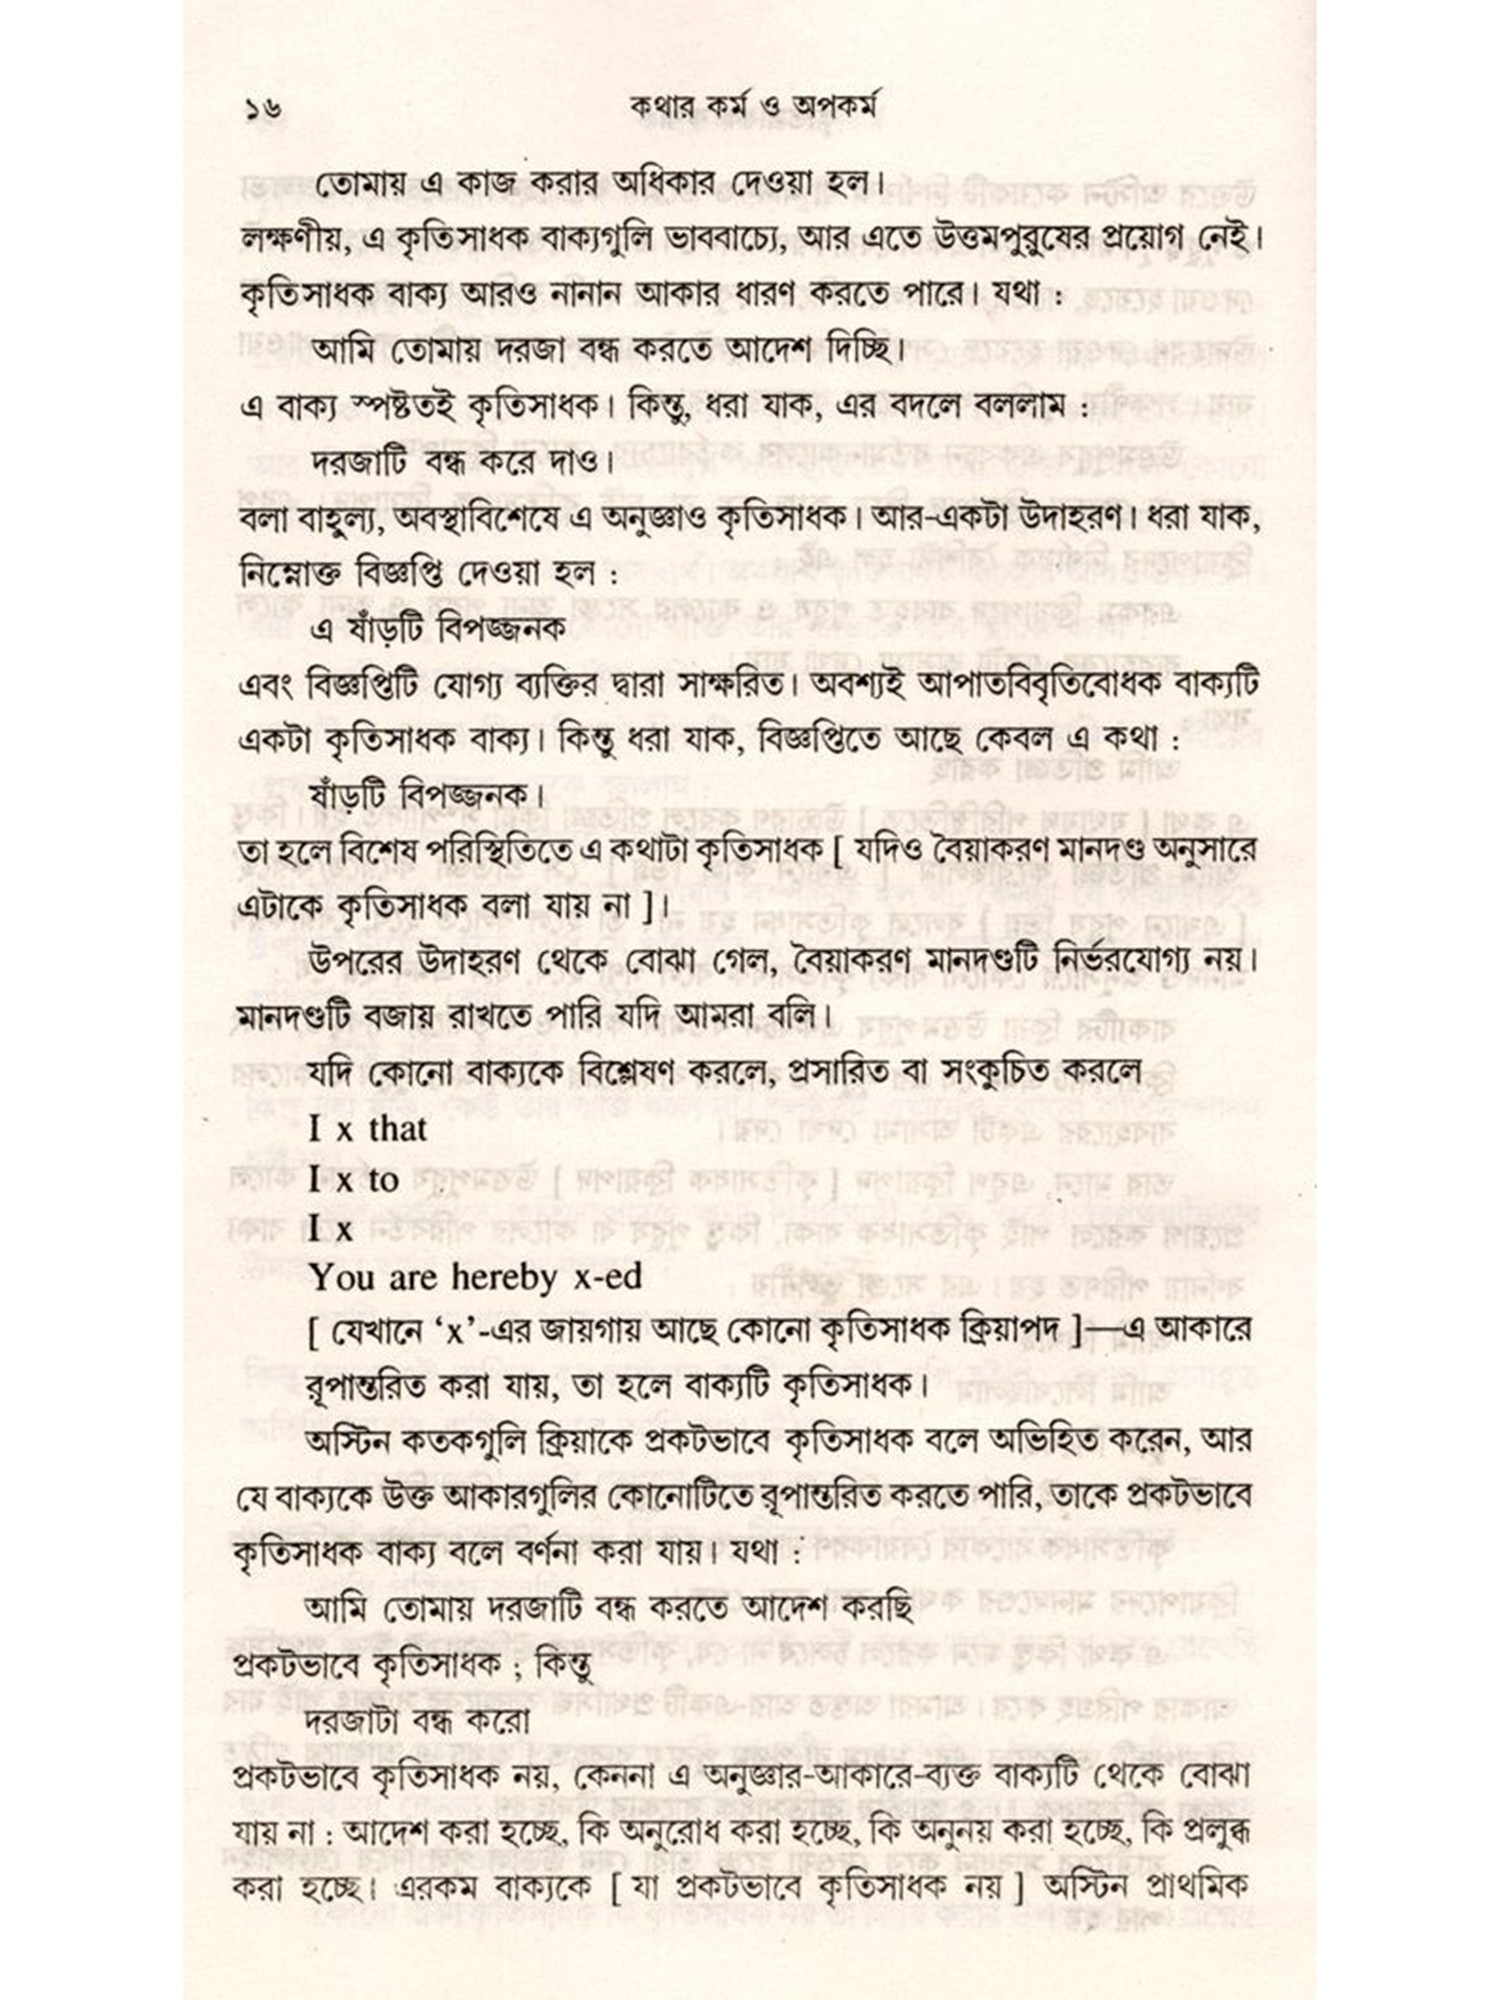 ১৬
কথার কর্ম ও অপকর্ম
তোমায় এ কাজ করার অধিকার দেওয়া হল।
লক্ষণীয়, এ কৃতিসাধক বাক্যগুলি ভাববাচ্যে, আর এতে উত্তমপুরুষের প্রয়োগ নেই।
কৃতিসাধক বাক্য আরও নানান আকার ধারণ করতে পারে। যথা :
আমি তোমায় দরজা বন্ধ করতে আদেশ দিচ্ছি।
এ বাক্য স্পষ্টতই কৃতিসাধক। কিন্তু, ধরা যাক, এর বদলে বললাম :
দরজাটি বন্ধ করে দাও।
বলা বাহুল্য, অবস্থাবিশেষে এ অনুজ্ঞাও কৃতিসাধক। আর-একটা উদাহরণ। ধরা যাক,
নিম্নোক্ত বিজ্ঞপ্তি দেওয়া হল :
এ ষাঁড়টি বিপজ্জনক
এবং বিজ্ঞপ্তিটি যোগ্য ব্যক্তির দ্বারা সাক্ষরিত। অবশ্যই আপাতবিবৃতিবোধক বাক্যটি
একটা কৃতিসাধক বাক্য। কিন্তু ধরা যাক, বিজ্ঞপ্তিতে আছে কেবল এ কথা :
ষাঁড়টি বিপজ্জনক।
তা হলে বিশেষ পরিস্থিতিতে এ কথাটা কৃতিসাধক [ যদিও বৈয়াকরণ মানদণ্ড অনুসারে
এটাকে কৃতিসাধক বলা যায় না ]।
উপরের উদাহরণ থেকে বোঝা গেল, বৈয়াকরণ মানদণ্ডটি নির্ভরযোগ্য নয়।
মানদণ্ডটি বজায় রাখতে পারি যদি আমরা বলি।
যদি কোনো বাক্যকে বিশ্লেষণ করলে, প্রসারিত বা সংকুচিত করলে
I x that
I x to
I x
You are hereby x-ed
[ যেখানে ‘x’-এর জায়গায় আছে কোনো কৃতিসাধক ক্রিয়াপদ ]—এ আকারে
রূপান্তরিত করা যায়, তা হলে বাক্যটি কৃতিসাধক।
অস্টিন কতকগুলি ক্রিয়াকে প্রকটভাবে কৃতিসাধক বলে অভিহিত করেন, আর
যে বাক্যকে উক্ত আকারগুলির কোনোটিতে রূপান্তরিত করতে পারি, তাকে প্রকটভাবে
কৃতিসাধক বাক্য বলে বর্ণনা করা যায়। যথা :
আমি তোমায় দরজাটি বন্ধ করতে আদেশ করছি
প্রকটভাবে কৃতিসাধক ; কিন্তু
দরজাটা বন্ধ করো
প্রকটভাবে কৃতিসাধক নয়, কেননা এ অনুজ্ঞার-আকারে-ব্যক্ত বাক্যটি থেকে বোঝা
যায় না : আদেশ করা হচ্ছে, কি অনুরোধ করা হচ্ছে, কি অনুনয় করা হচ্ছে, কি প্রলুব্ধ
করা হচ্ছে। এরকম বাক্যকে [ যা প্রকটভাবে কৃতিসাধক নয় ] অস্টিন প্রাথমিক